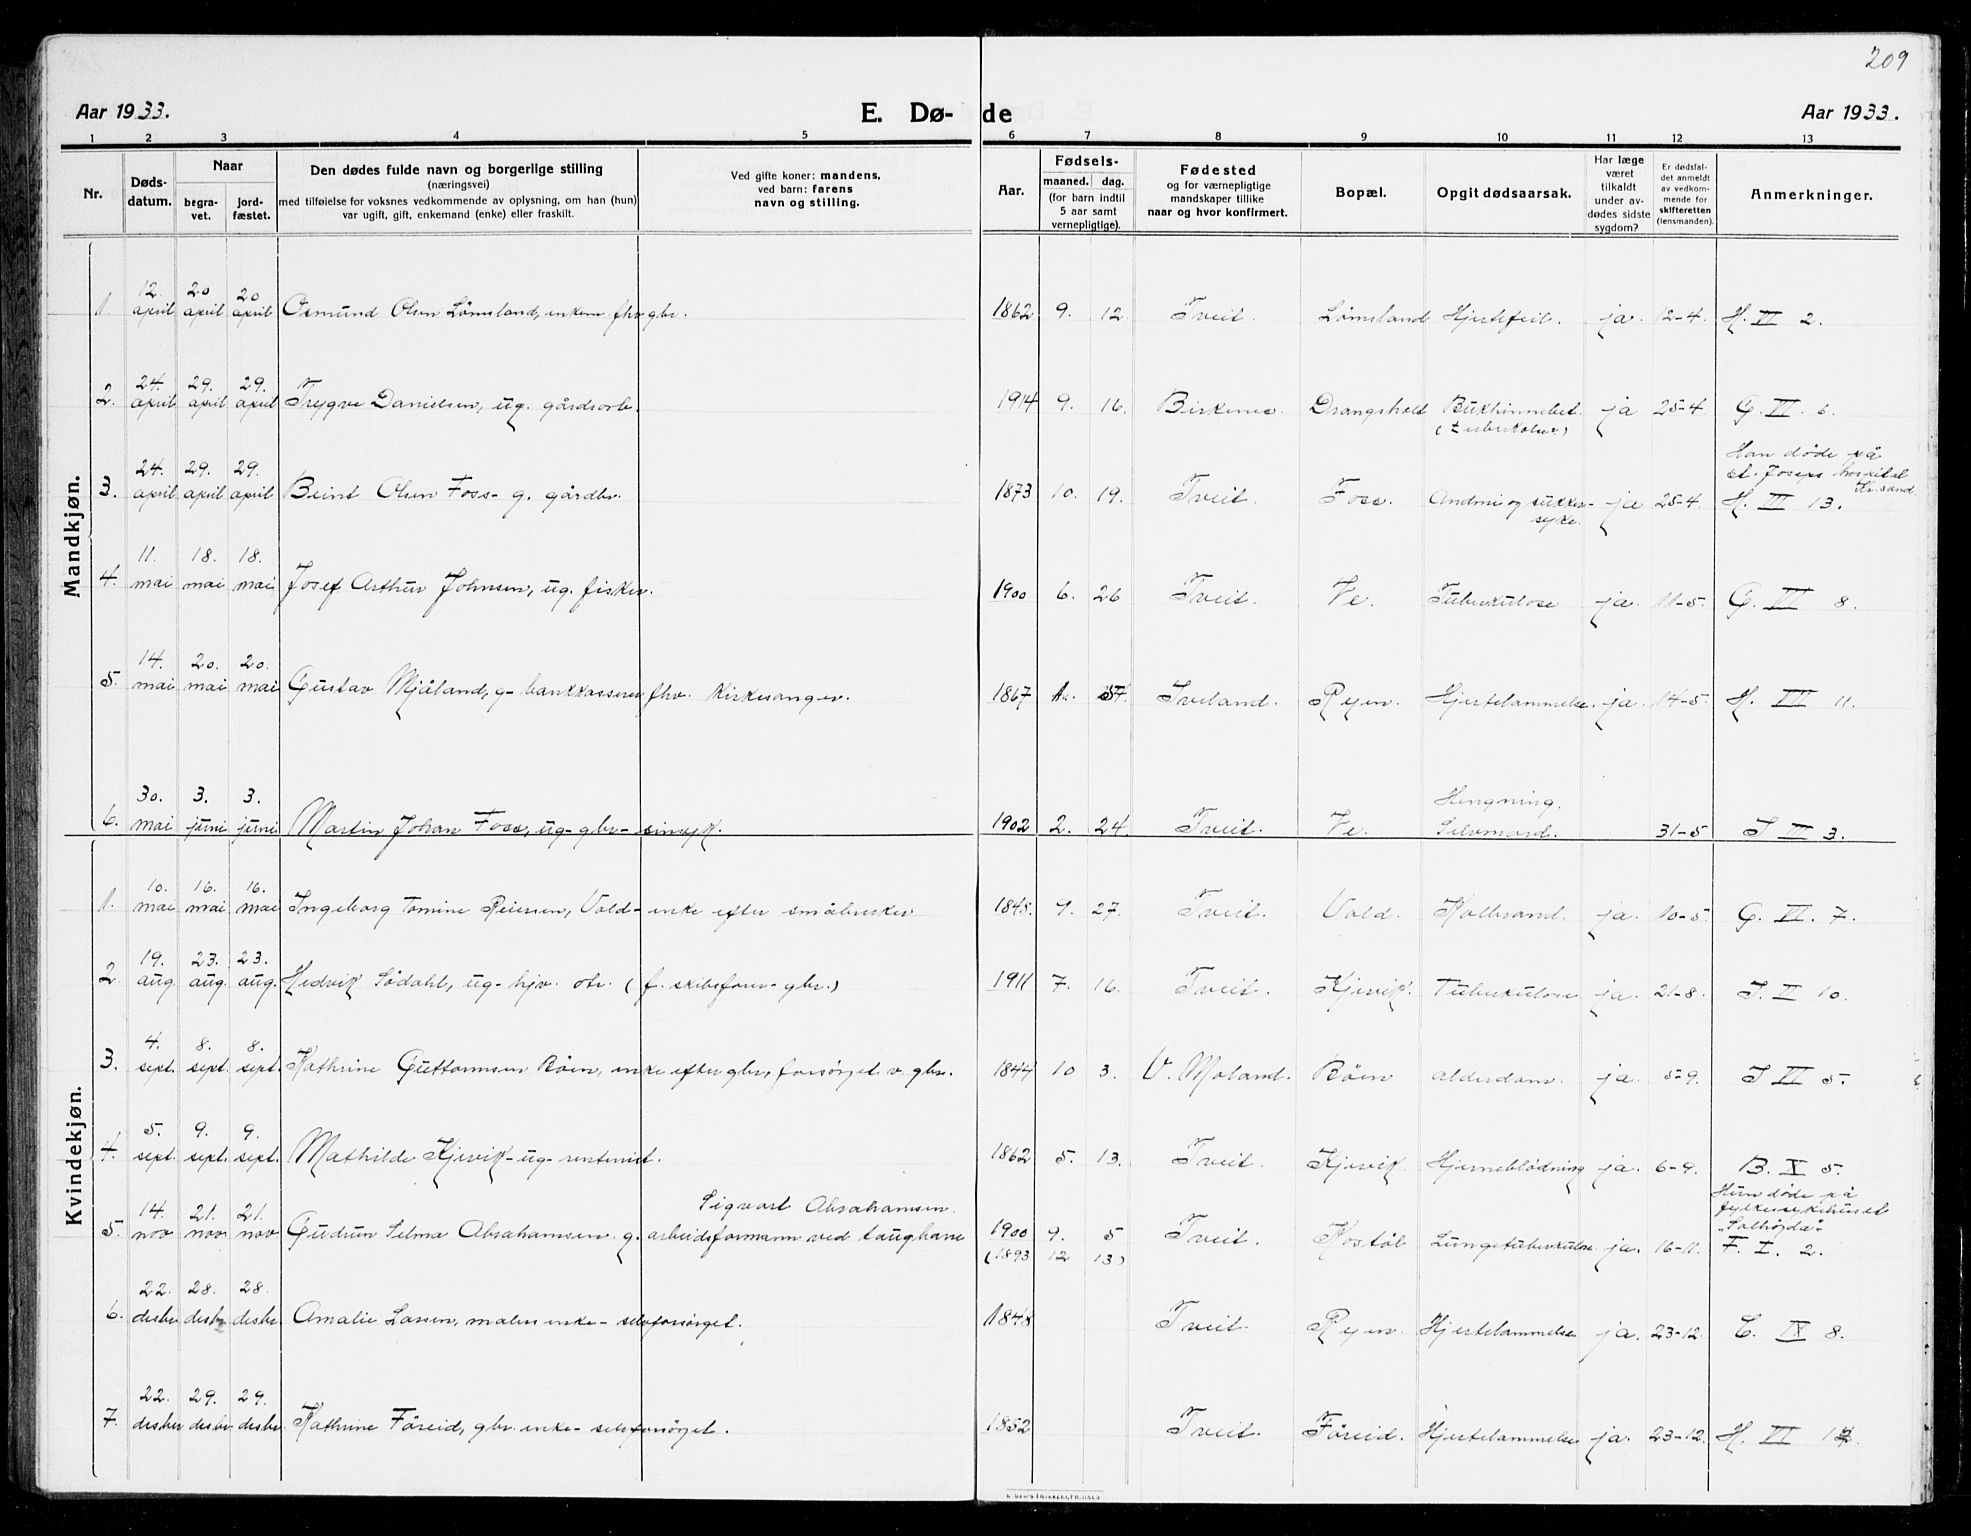 209
Aar 1933. E. Dø- de Aar 1933.
1 2 3 4 5 6 7 8 9 10 11 12 13
Nr. Døds-datum. Naar begra-vet. jord-fæstet. Den dødes fulde navn og borgerlige stilling (næringsvei) med tilføielse for voksnes vedkommende av oplysning, om han (hun) var ugift, gift, enkemand (enke) eller fraskilt. Ved gifte koner: mandens, ved barn: farens navn og stilling. Aar. Fødsels- maaned. dag. (for barn indtil 5 aar samt vernepligtige). Fødested og for værnepligtige mandskaper tillike naar og hvor konfirmert. Bopæl. Opgit dødsaarsak. Har læge været tilkaldt under av-dødes sidste sygdom? Er dødsfal-det anmeldt av vedkom-mende for skifteretten (lensmanden). Anmerkninger.
Mandkjøn.
1. 12. april 20 april 20 april Osmund Olsen Lømsland, enkem. fhv gbr. 1862 9. 12. Tveit. Lømsland Hjertefeil. ja. 12-4. H. VI 2.
2. 24. april 29. april 29. april Trygve Danielsen, ug. gårdsarb. 1914 9. 16. Birkenes. Drangsholt Bukhinnebet. (tuberkolose) ja 25-4. G. VI. 6.
3. 24. april 29. april 29. april Beint Olsen Foss - g. gårdbr. 1873 10. 19. Tveit. Foss. og sukker-syke. ja 25-4. Han døde på st. Joseps hospital Kr.sand. H. III 13.
4. 11. mai 18. mai 18. mai Josef Arthur Johnsen, ug. fisker. 1900 6. 26 Tveit. Ve. Tuberkulose ja. 11-5. G. VI 8.
5. 14. mai 20. mai 20. mai Gustav Mjåland, g- bankkasserer fhv. kirkesanger. 1867 Iveland. Ryen. Hjertelammelse. ja. 14-5. H. VII 11.
6. 30. mai 3. juni 3. juni Martin Johan Foss, ug- gbr- sinsyk. 1902 2. 24. Tveit. Ve. Hengning. Selvmord. 31-5 J III 3.
Kvindekjøn.
1. 10. mai 16. mai 16. mai Ingeborg Tomine Reiersen, Vold- enke efter småbruker 1845. 7. 27. Tveit. Vold. Kolbrand. ja. 10-5. G. VI. 7.
2 19. aug. 23. aug. 23. aug. Hedvik Södahl, ug- hjv. otr. (f. skibsfører- gbr.) 1911 7. 16. Tveit. Kjevik. Tuberkulose ja. 21-8. J. II 10.
3. 4. sept. 8. sept. 8. sept. Kathrine Guttormsen Böen, enke efter gbr, forsørget v. gbr. 1844 10 3. V. Moland. Böen alderdom. ja. 5-9. J VI 5.
4. 5. sept. 9. sept. 9. sept. Mathilde Kjevik- ug- rentenist. 1862 5. 13. Tveit. Kjevik. Hjerneblödning ja. 6-9. B. X 5.
5. 14. nov 21. nov. 21. nov Gudrun Selma Abrahamsen. g. Sigvart Abrahamsen. arbeidsformann ved taugbane 1900 9. 5 (1893 12 13) Tveit. Kostöl Lungetuberkulose ja. 16-11. Hun døde på fylkessykehuset „Solhøgda” F. I. 2.
6. 22. desbr 28. desbr 28. desbr. Amalie Larsen, maler enke- selvforsørget. 1848 Tveit. Ryen. Hjertelammelse ja. 23-12. C. IX 8.
7. 22. desbr 29. desbr 29. desbr. Kathrine Föreid, gbr. enke- selvforsørget. 1852 Tveit. Föreid. Hjertelammelse ja. 23-12. H. VI